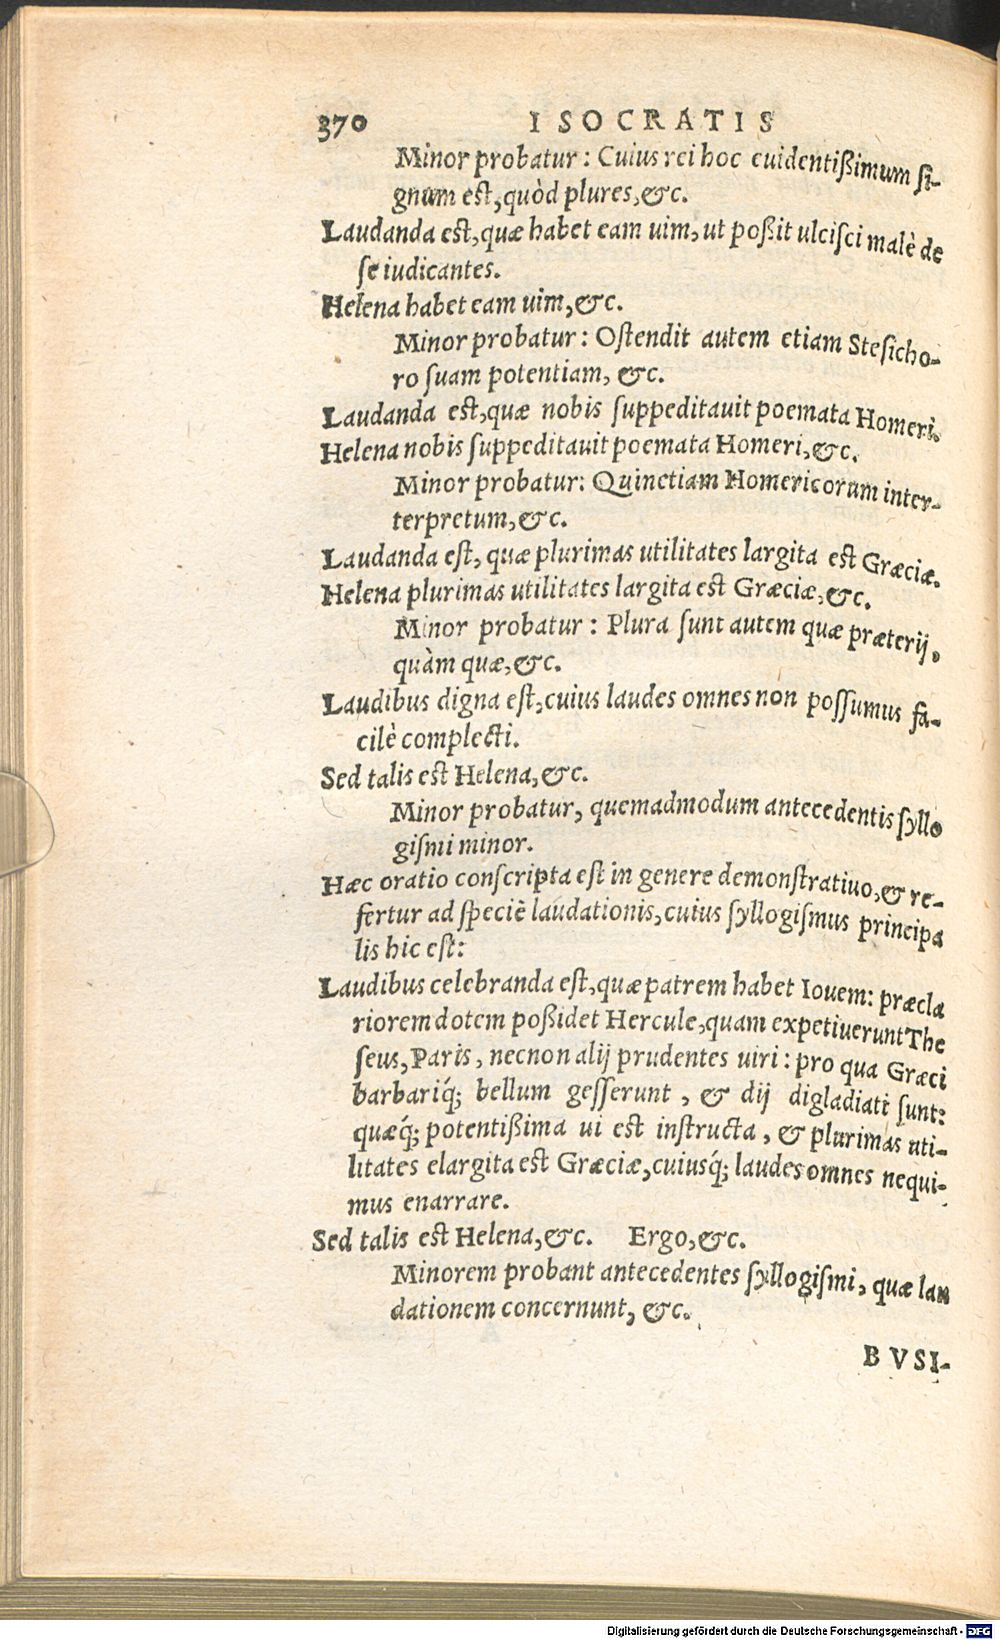 370 ISOCRATIS
Minor probatur: Cuius rei hoc euidentißimum ſi-
gnum est, quòd plures, &c.
Laudanda est, quæ habet eam uim, ut poßit ulciſci malè de
ſe iudicantes.
Helena habet eam uim, &c.
Minor probatur: Oſtendit autem etiam Steſicho-
ro ſuam potentiam, &c.
Laudanda est, quæ nobis ſuppeditauit poemata Homeri.
Helena nobis ſuppeditauit poemata Homeri, &c.
Minor probatur: Quinetiam Homericorum inter-
terpretum, &c.
Laudanda eſt, quæ plurimas utilitates largita est Græciæ.
Helena plurimas utilitates largita est Græciæ, &c.
Minor probatur: Plura ſunt autem quæ præterij,
quàm quæ, &c.
Laudibus digna eſt, cuius laudes omnes non poſſumus fa-
cilè complecti.
Sed talis est Helena, &c.
Minor probatur, quemadmodum antecedentis ſyllo
giſmi minor.
Hæc oratio conſcripta eſt in genere demonſtratiuo, & re-
fertur ad ſpeciē laudationis, cuius ſyllogiſmus principa
lis hic eſt:
Laudibus celebranda eſt, quæ patrem habet Iouem: præcla
riorem dotem poßidet Hercule, quam expetiuerunt The
ſeus, Paris, necnon alij prudentes uiri: pro qua Græci
barbariq́; bellum geſſerunt, & dij digladiati ſunt:
quæq́; potentißima ui est inſtructa, & plurimas uti-
litates elargita est Græciæ, cuiusq́; laudes omnes nequi-
mus enarrare.
Sed talis est Helena, &c. Ergo, &c.
Minorem probant antecedentes ſyllogiſmi, quæ lau
dationem concernunt, &c.
BVSI-
Digitalisierung gefördert durch die Deutsche Forschungsgemeinschaft - DFG